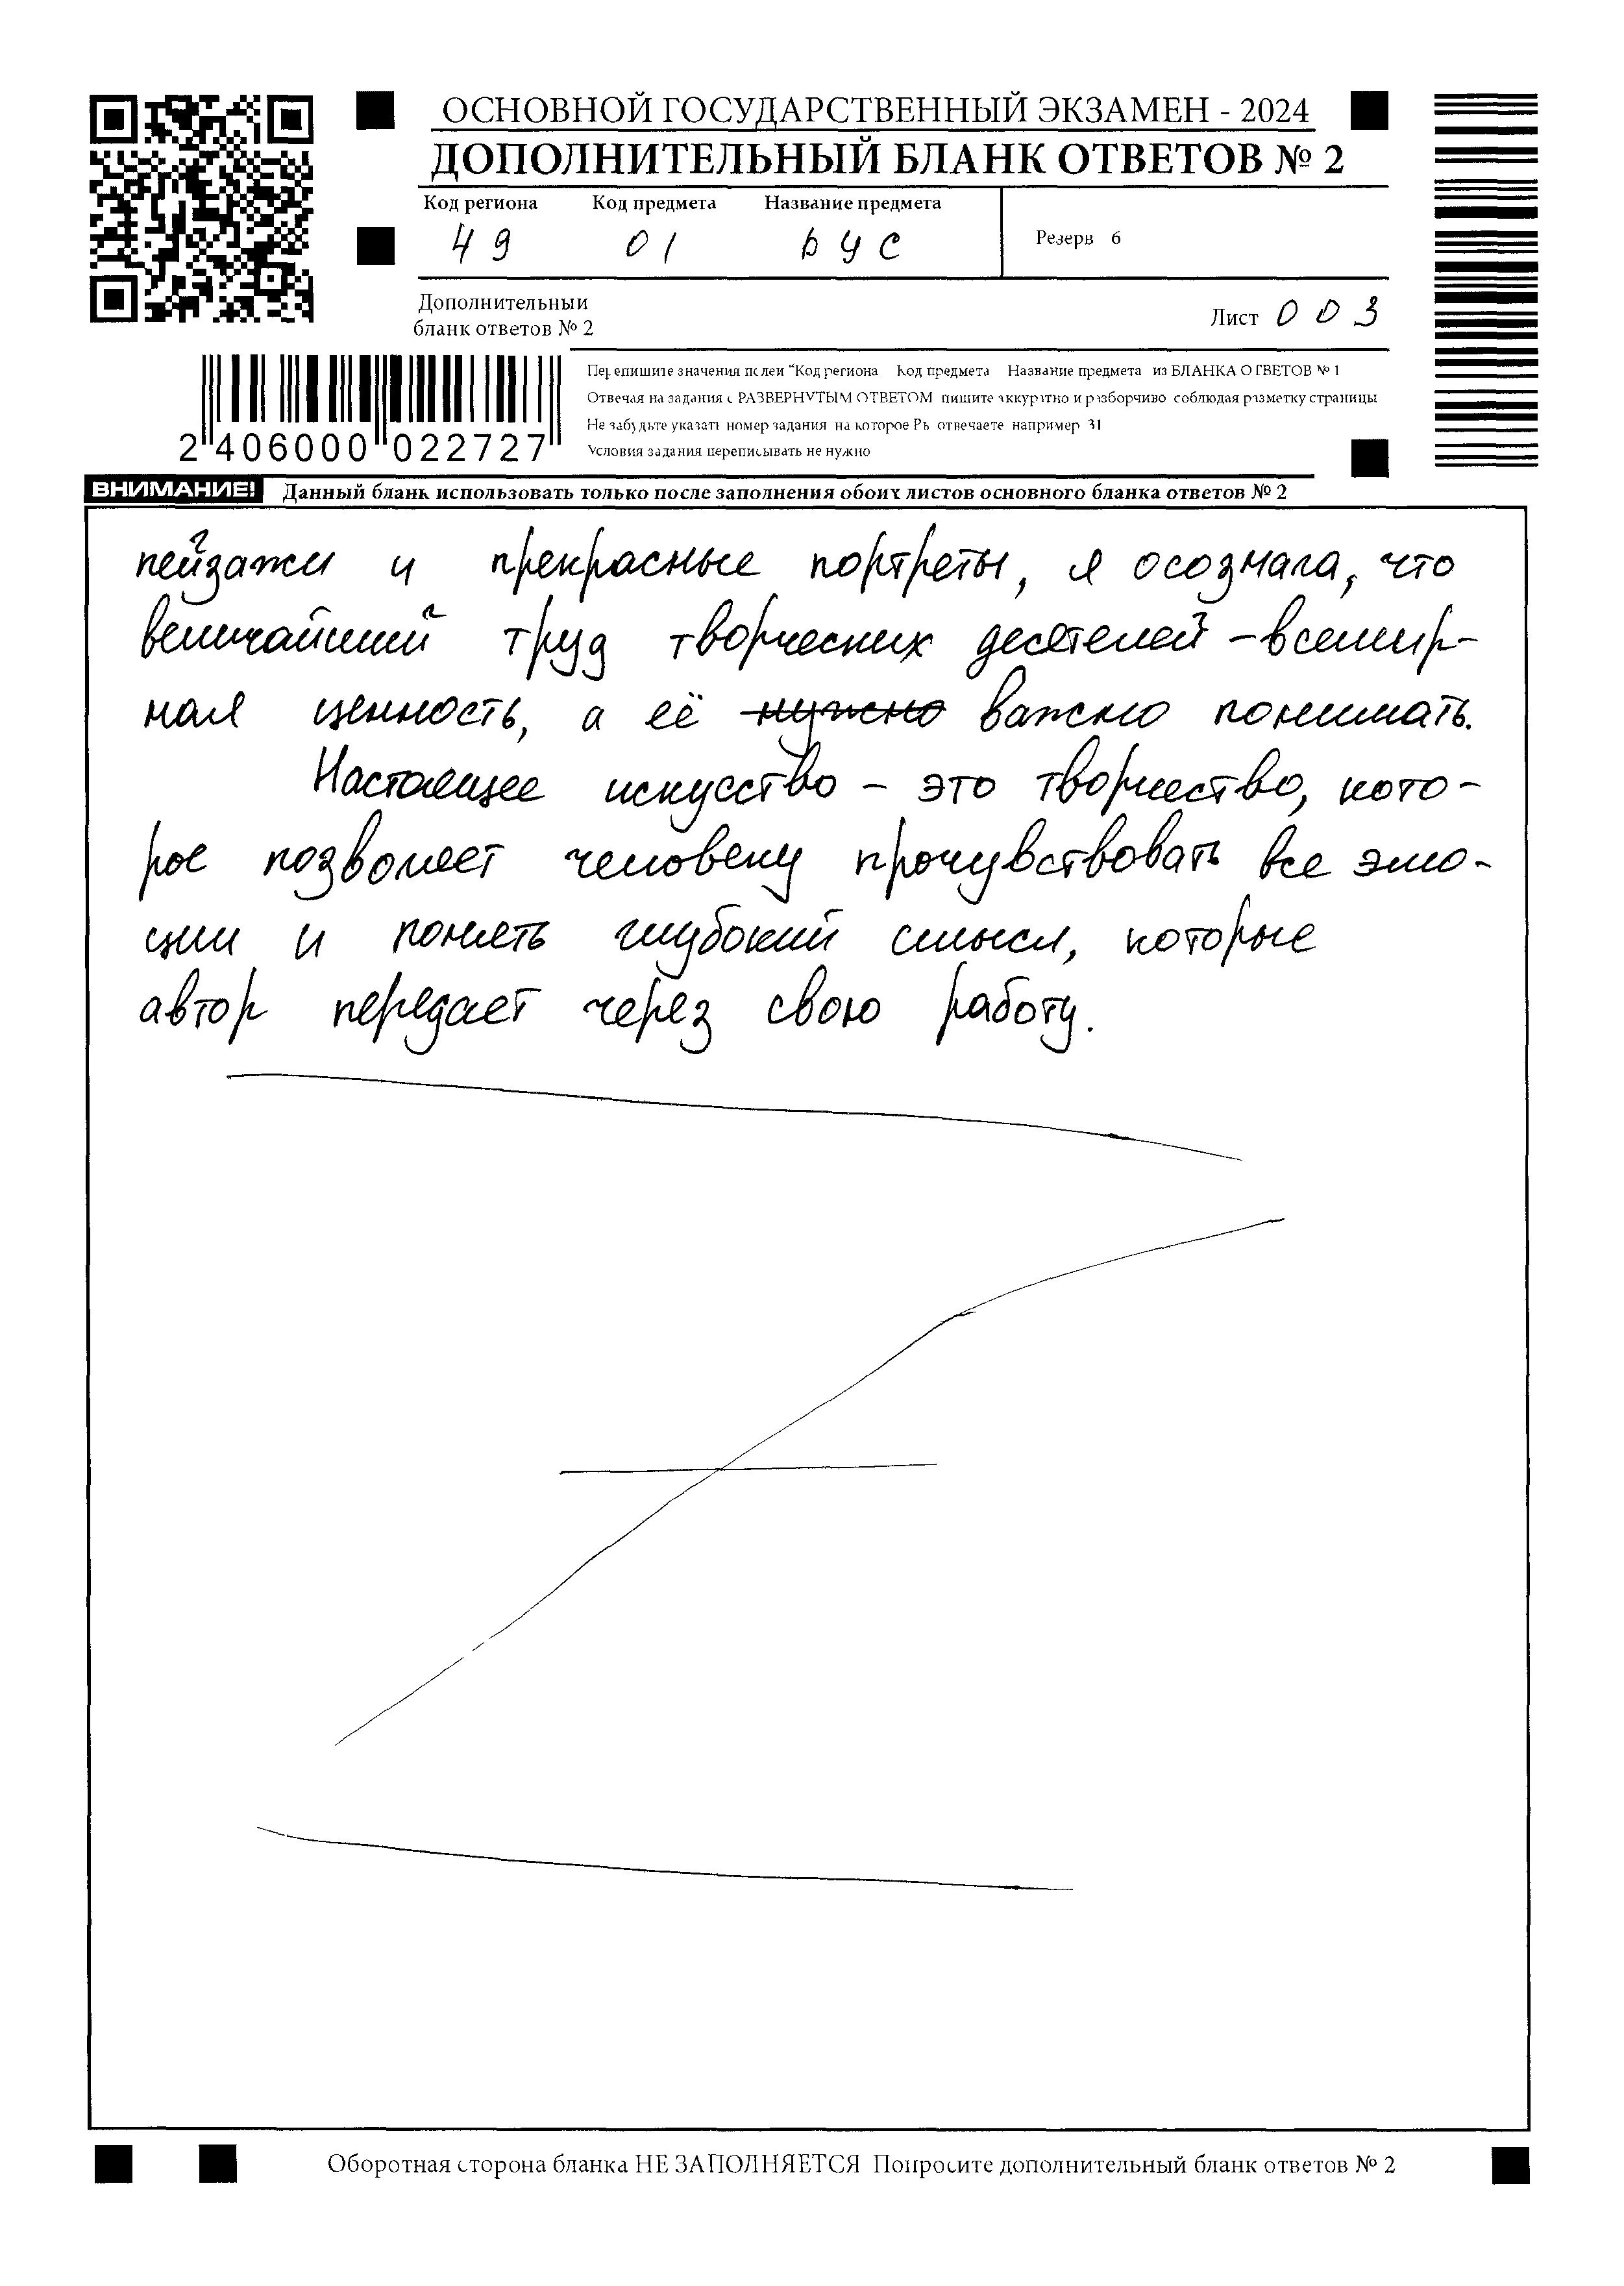 ОСНОВНОЙ ГОСУДАРСТВЕННЫЙ ЭКЗАМЕН - 2024
ДОПОЛНИТЕЛЬНЫЙ БЛАНК ОТВЕТОВ № 2
Код региона Код предмета Название предмета
49 01 РУС
Резерв 6
Дополнительный
бланк ответов № 2
Лист 003
2 406000 022727
Перепишите значения полей "Код региона Код предмета Название предмета из БЛАНКА ОТВЕТОВ № 1
Отвечая на задания с РАЗВЕРНУТЫМ ОТВЕТОМ пишите аккуратно и разборчиво соблюдая разметку страницы
Не забудьте указать номер задания на которое Вы отвечаете например 31
Условия задания переписывать не нужно
ВНИМАНИЕ! Данный бланк использовать только после заполнения обоих листов основного бланка ответов № 2
пейзажи и прекрасные портреты, я осознала, что
величайший труд творческих десятелей – всемир-
ная ценность, а её нужно важно понимать.
Настоящее искусство – это творчество, кото-
рое позволяет человеку прочувствовать все эмо-
ции и понять глубокий смысл, которые
автор передает через свою работу.
Оборотная сторона бланка НЕ ЗАПОЛНЯЕТСЯ Попросите дополнительный бланк ответов № 2